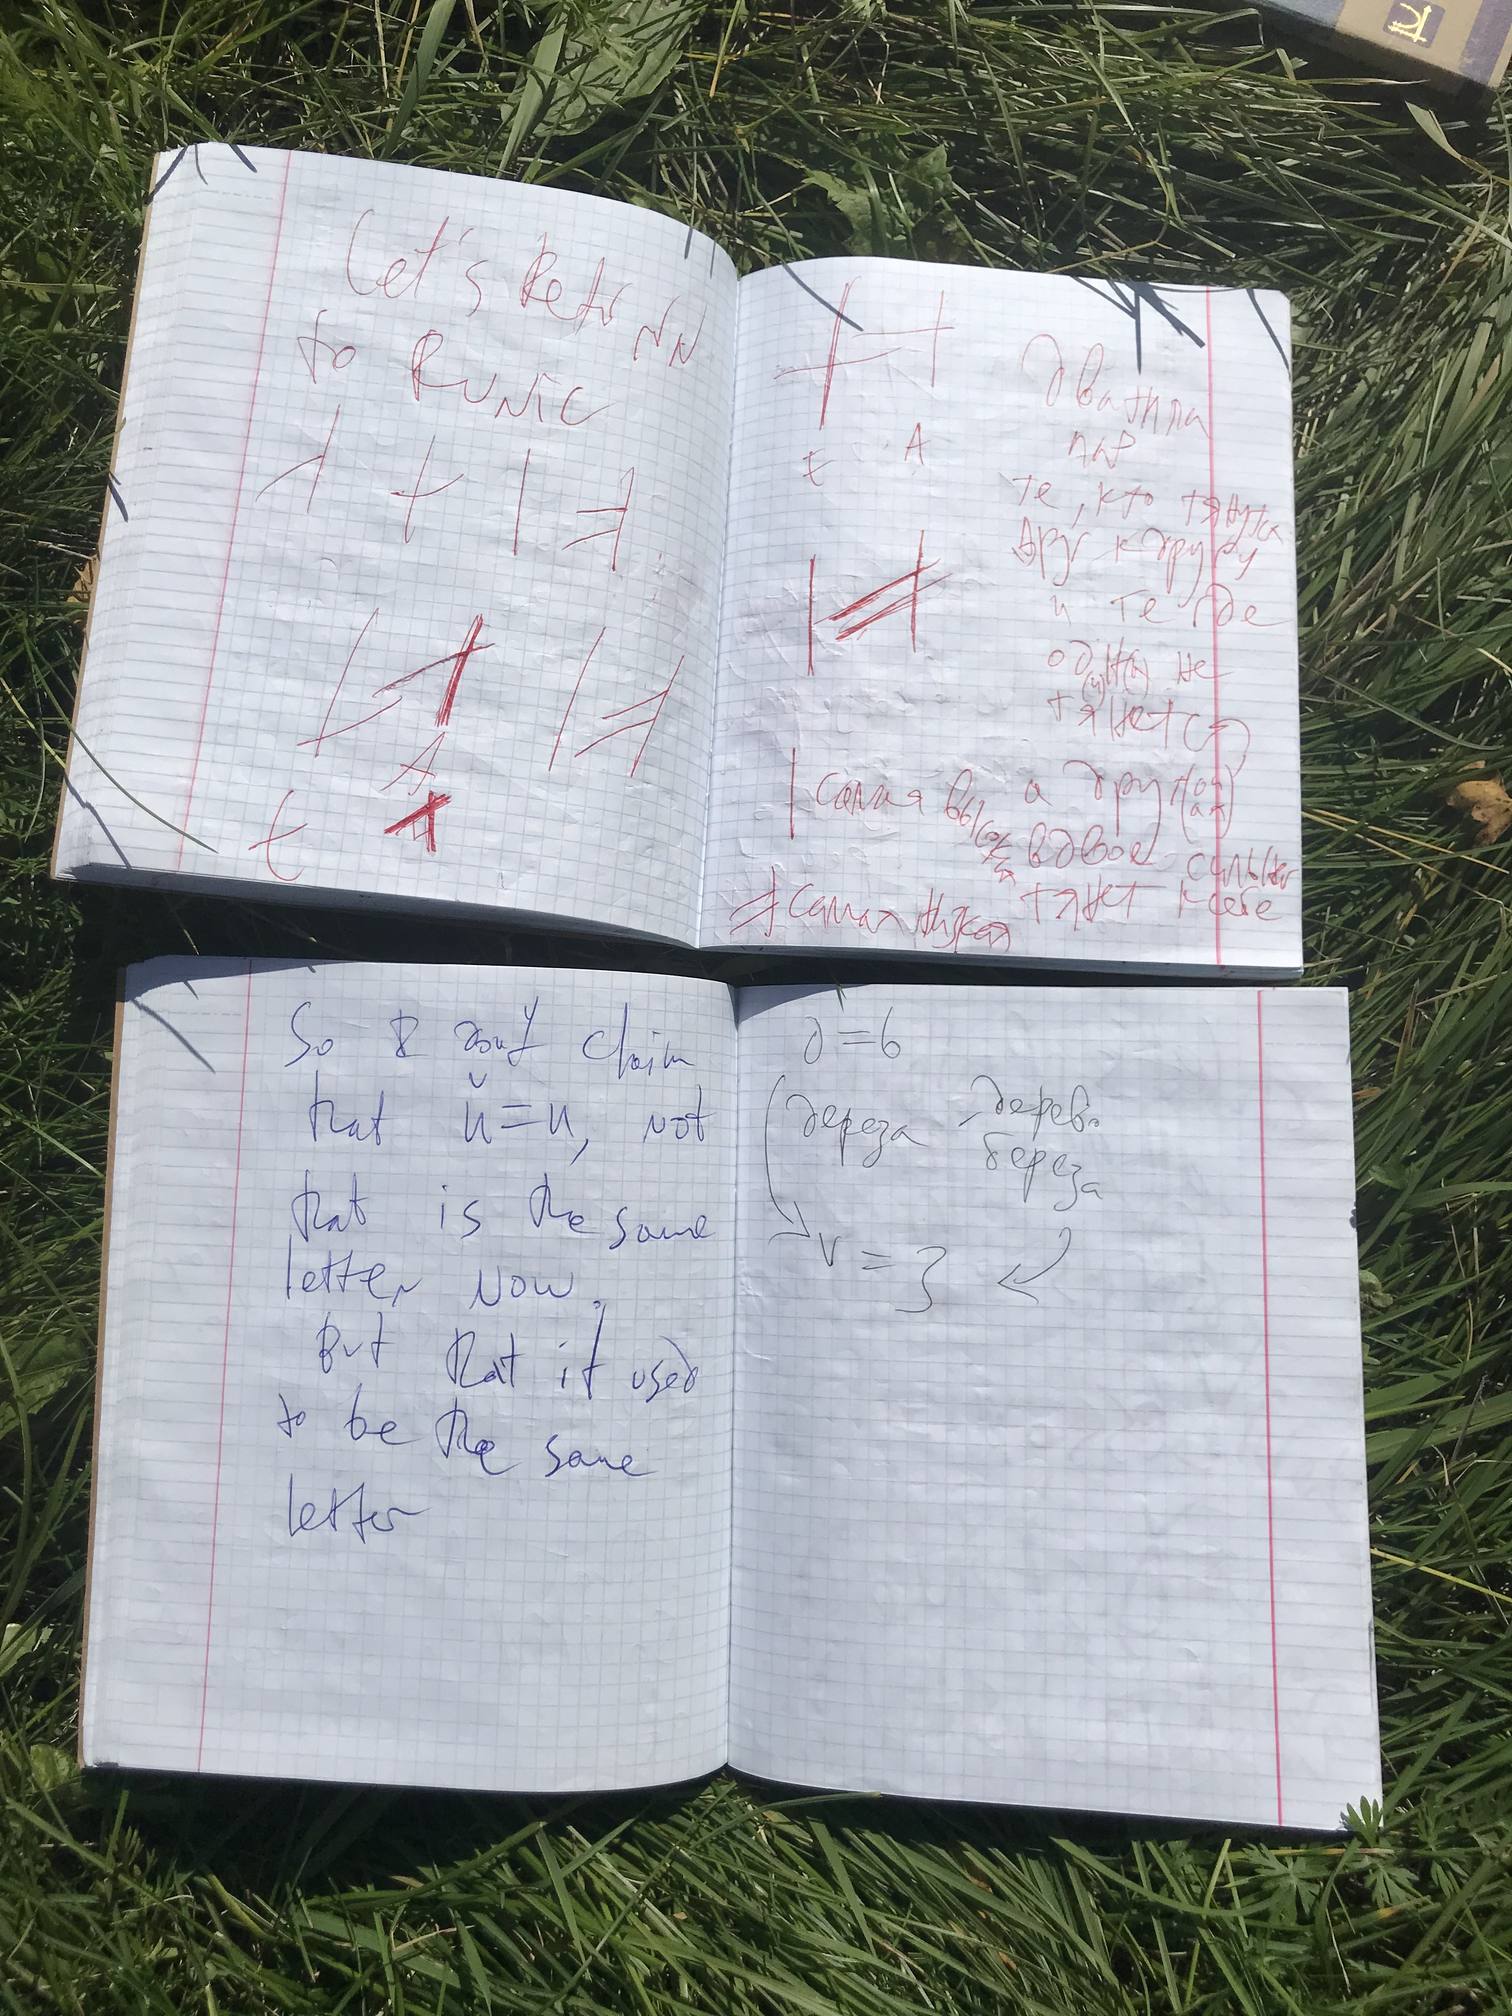 Let's Return
to Runic
A
t
t A
два типа
пар
те, кто тянутся
друг к другу
и те где
не
тянется
а друг(ой)
самая высокая
вдвое сильнее
тянет к себе
самая низкая
So I don't claim
that й=и, not
that is the same
letter now.
But that it used
to be the same
letter
д=б
дереза дерево
береза
v = з